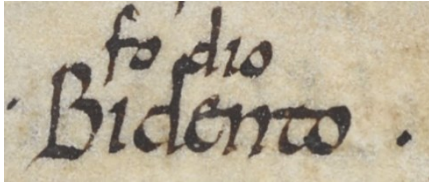 fo dio
· Bidento ·